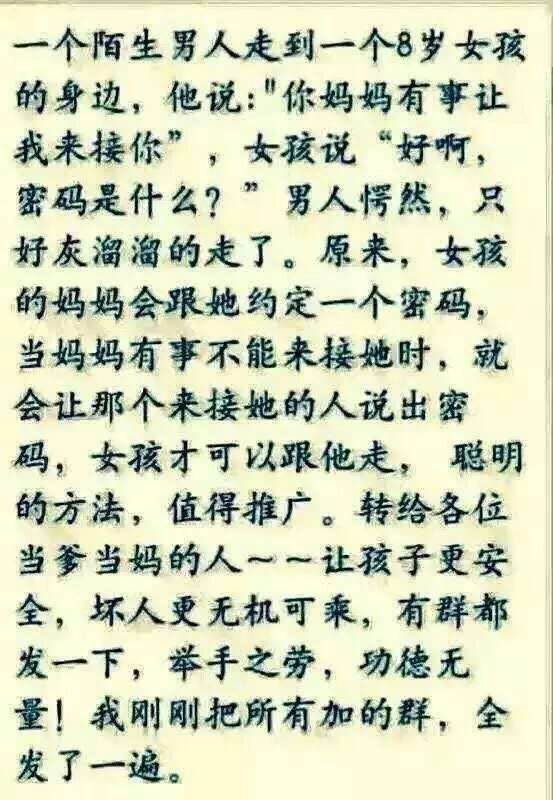 一个陌生男人走到一个8岁女孩
的身边，他说："你妈妈有事让
我来接你”，女孩说“好啊，
密码是什么？”男人愕然，只
好灰溜溜的走了。原来，女孩
的妈妈会跟她约定一个密码，
当妈妈有事不能来接她时，就
会让那个来接她的人说出密
码，女孩才可以跟他走，聪明
的方法，值得推广。转给各位
当爹当妈的人～～让孩子更安
全，坏人更无机可乘，有群都
发一下，举手之劳，功德无
量！我刚刚把所有加的群，全
发了一遍。